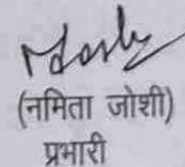 (नमिता जोशी)
प्रभारी